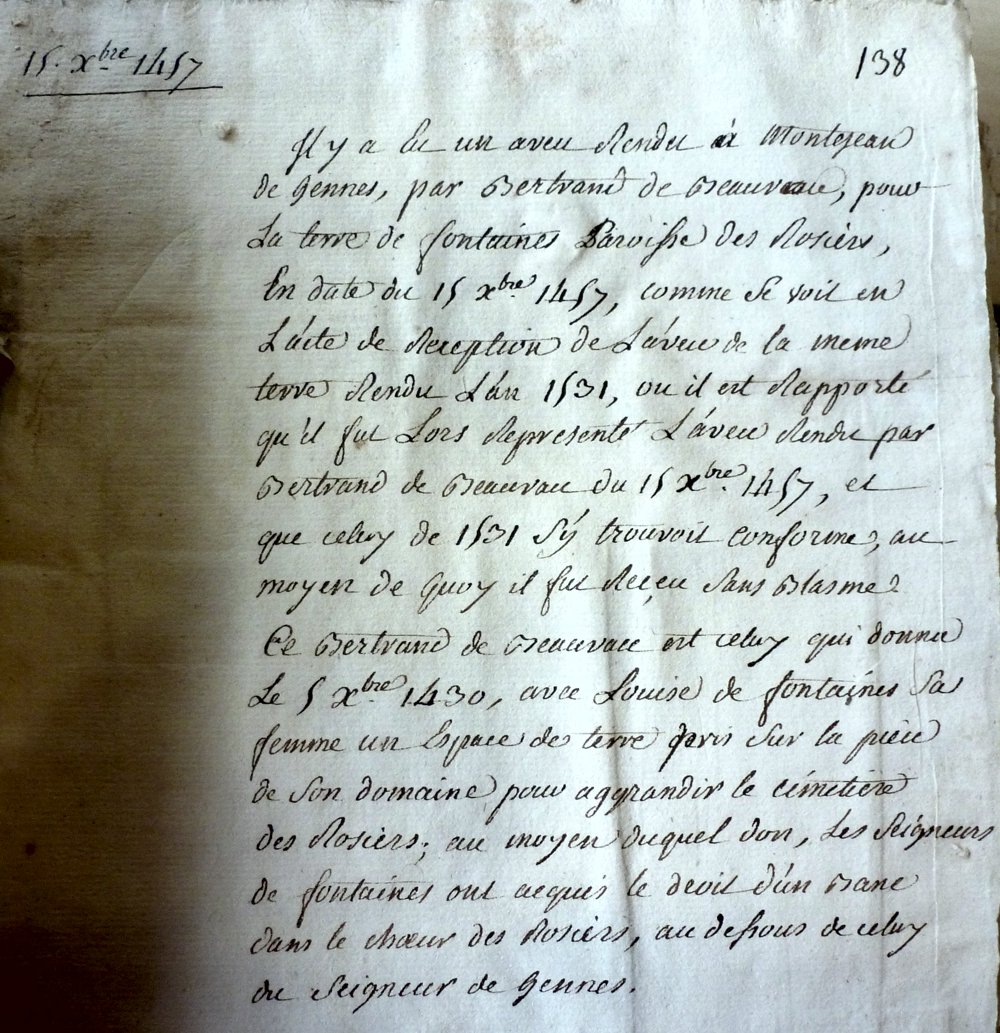 15. Xbre 1457
138
Il y a eu un aveu Rendu à Montejean
de Gennes, par Bertrand de Beauvau, pour
La terre de fontaines Paroisse des Rosiers,
En date du 15 Xbre. 1457, comme se voit en
L'acte de Reception de L'áveu de la meme
terre Rendu L'án 1531, ou il est Rapporté
qu'il fut Lors Representé L'áveu Rendu par
Bertrand de Beauvau du 15 Xbre. 1457, et
que celuy de 1531 s'y trouvoit conforme, au
moyen de quoy il fut Reçeu sans Blasme.
Ce Bertrand de Beauvau est celuy qui donna
Le 5 Xbre. 1430, avec Louise de fontaines sa
femme un Espace de terre pris sur la piéce
de son domaine pour aggrandir le cémetiére
des Rosiers; au moyen duquel don, Les Seigneurs
de fontaines ont acquis le droit d'ún Banc
dans le chœur des Rosiers, au dessous de celuy
du Seigneur de Gennes.